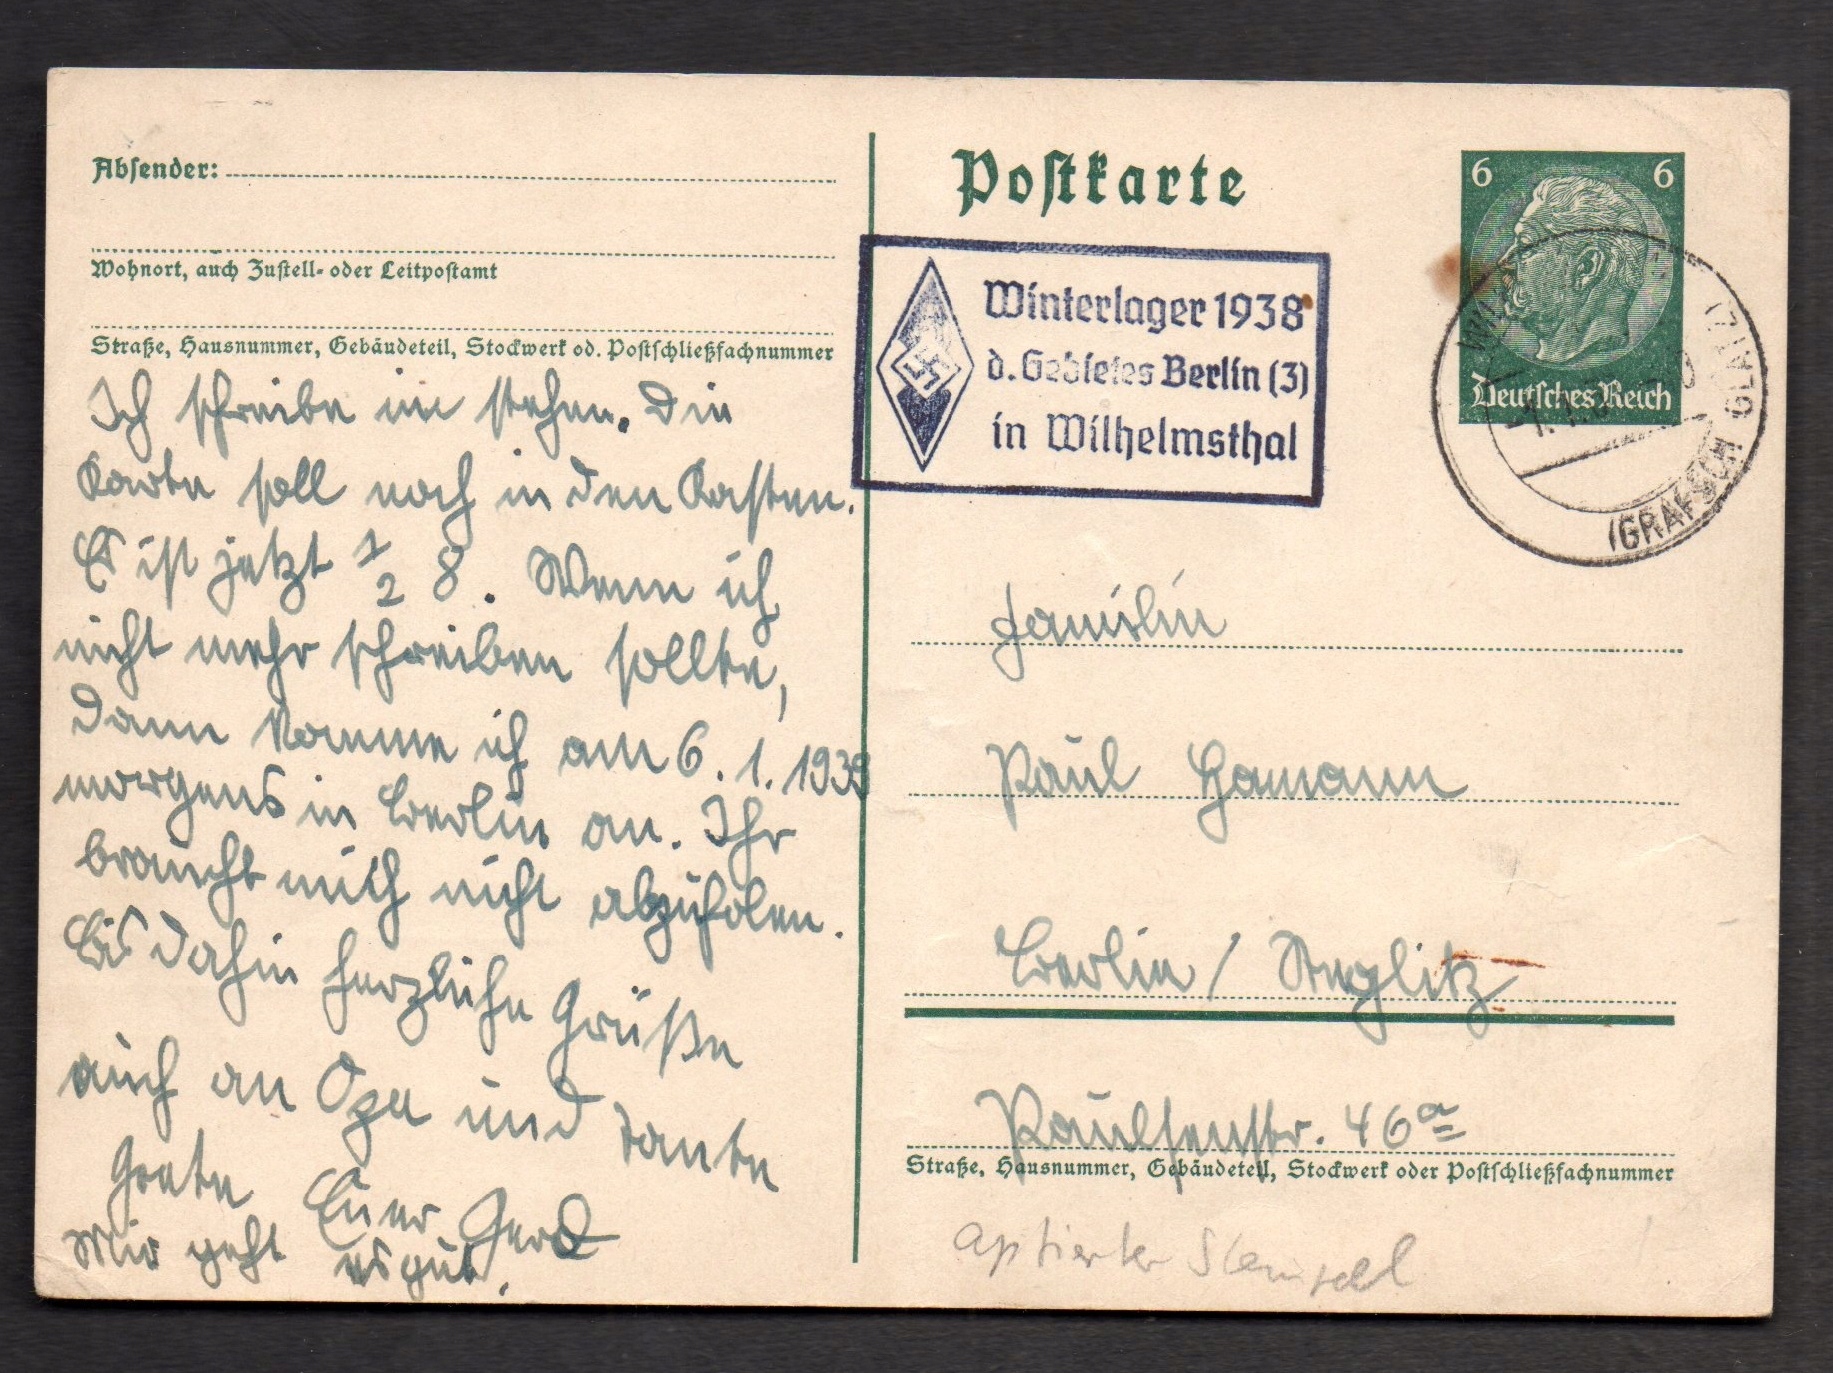 Absender:
Wohnort, auch Zustell- oder Leitpostamt
Straße, Hausnummer, Gebäudeteil, Stockwerk od. Postschließfachnummer
Ich schreibe im stehen. Die
Karte soll noch in den Kasten.
Es ist jetzt 1/2 8. Wenn ich
nicht mehr schreiben sollte,
dann komme ich am 6. 1. 1939
morgens in Berlin an. Ihr
braucht mich nicht abzuholen.
Bis dahin herzliche Grüße
auch an Opa und Tante
Grete Euer Gerd
Mir geht es gut.
Postkarte
Winterlager 1938
d. Gebietes Berlin (3)
in Wilhelmsthal
6 6
Deutsches Reich
(GRAFSCH GLATZ)
Familie
Paul Hamann
Berlin / Steglitz
Paulsenstr. 46a
Straße, Hausnummer, Gebäudeteil, Stockwerk oder Postschließfachnummer
aptierter Stempel